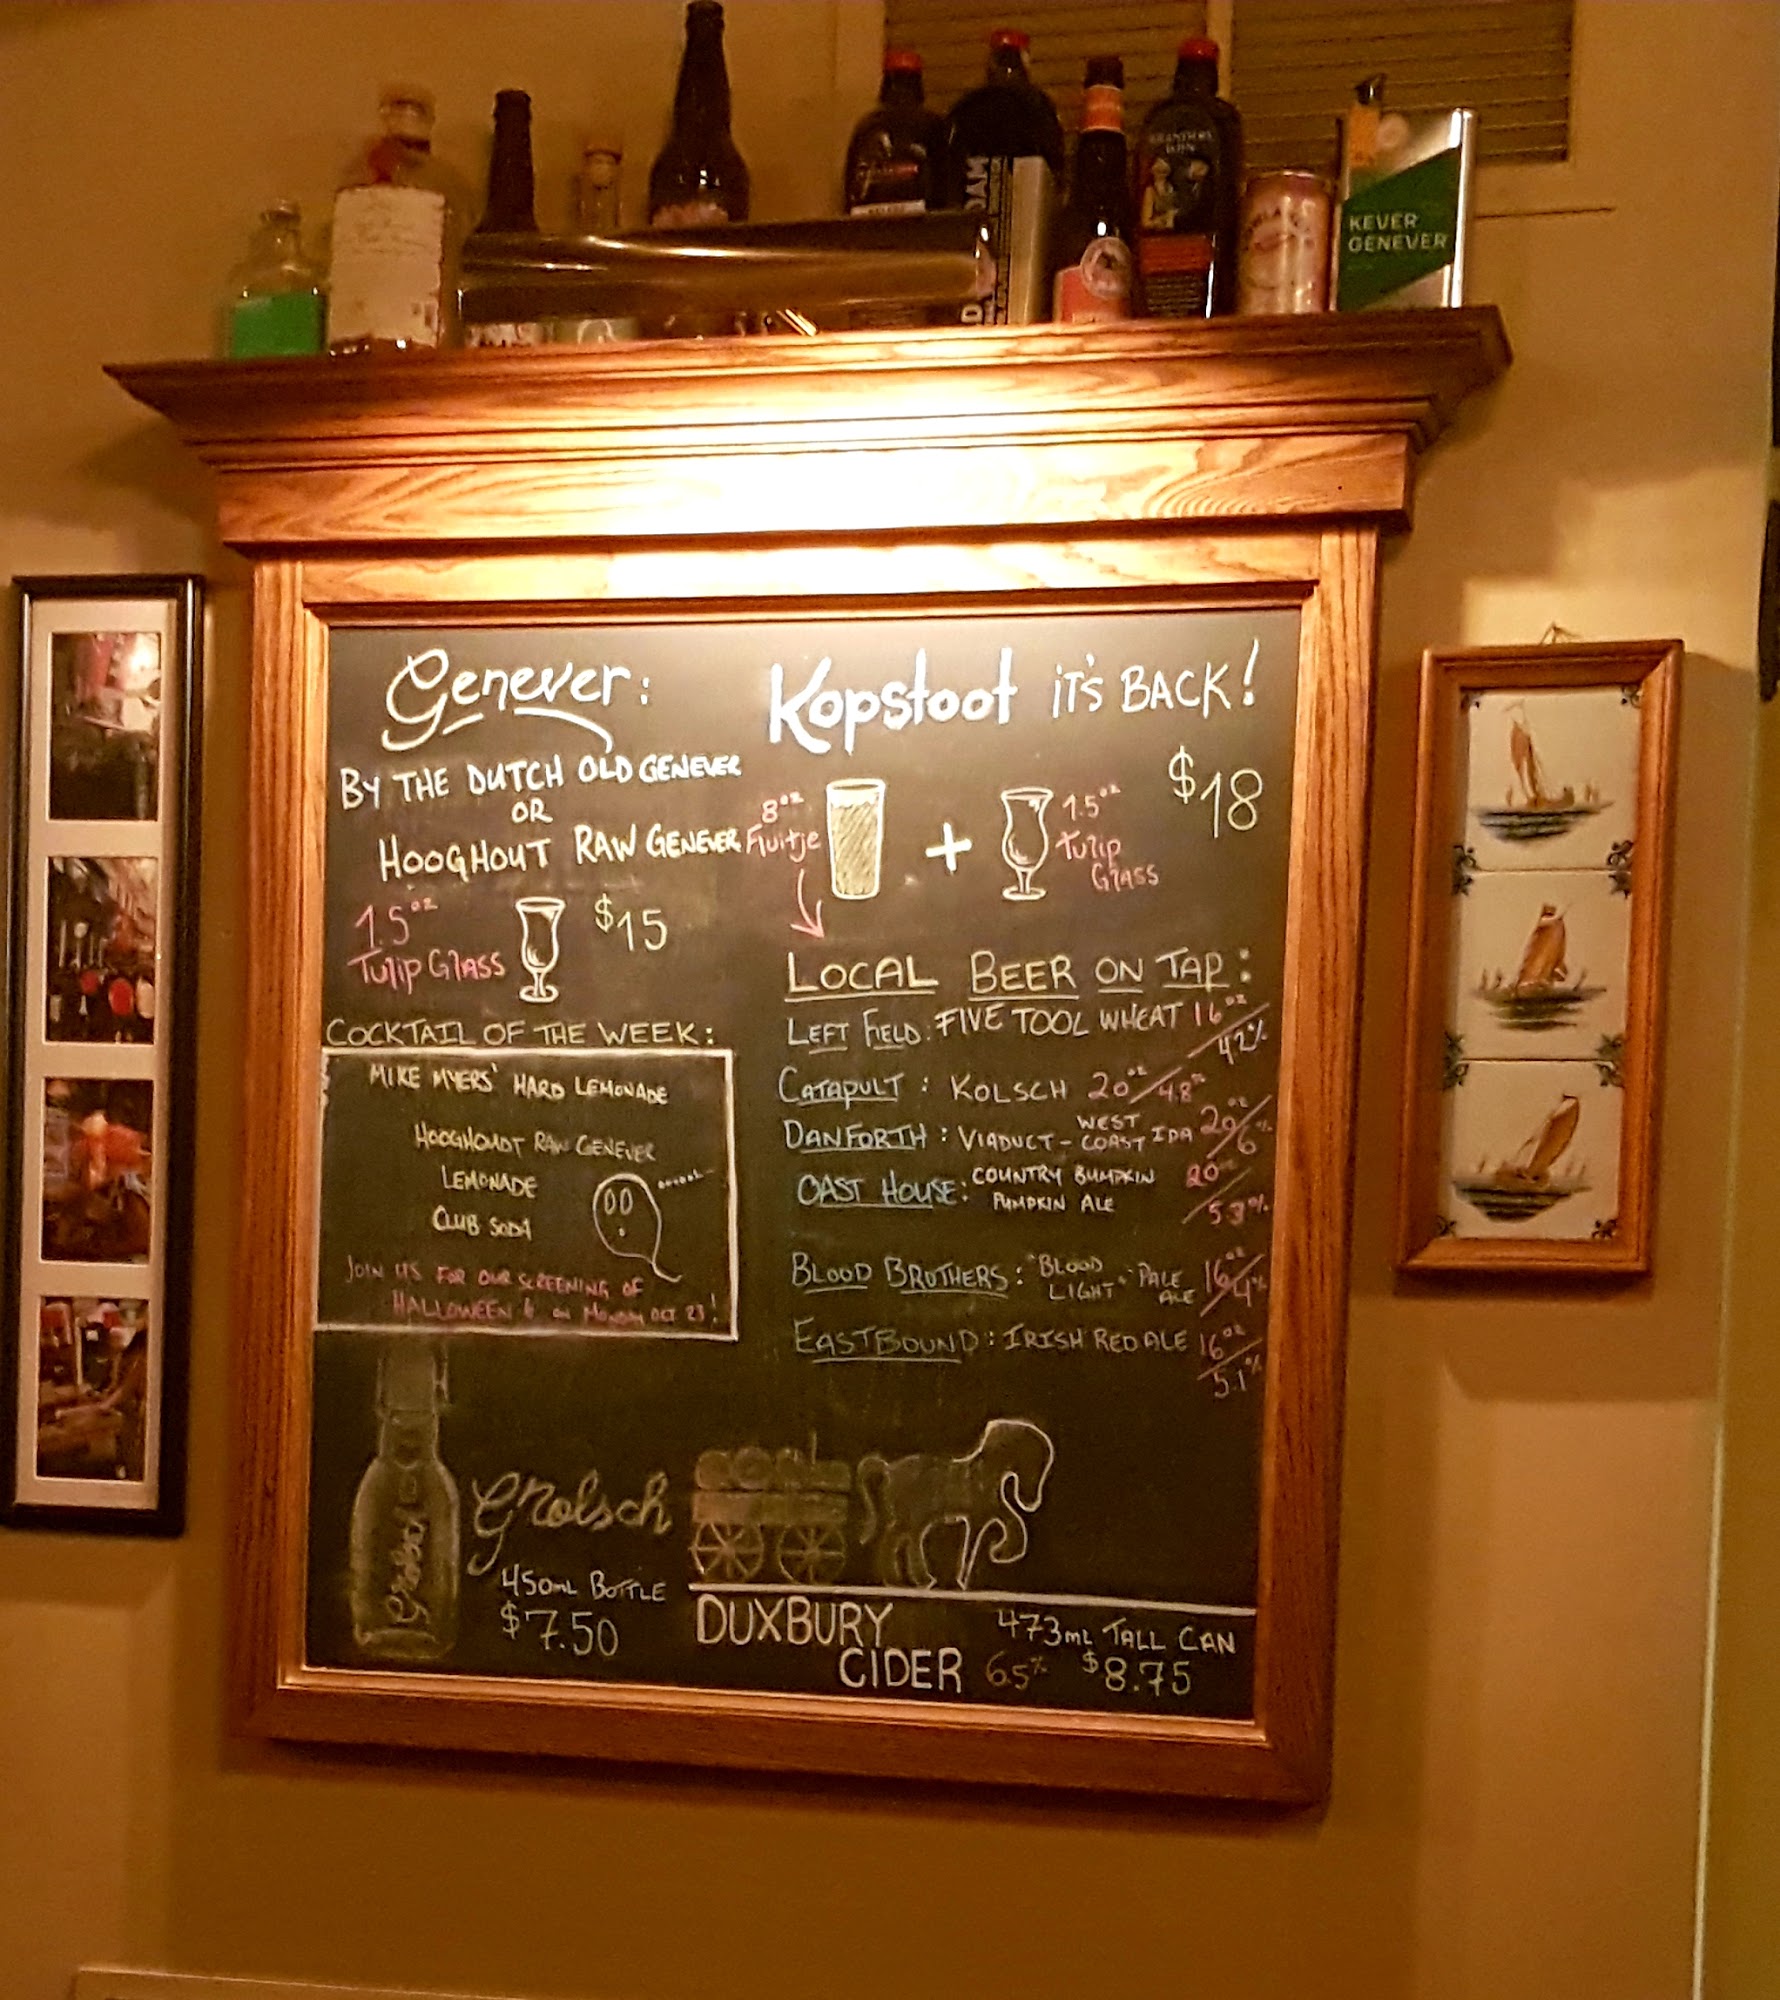 KEVER
GENEVER
Genever:
BY THE DUTCH OLD GENEVER
OR
HOOGHOUT RAW GENEVER
1.5oz
Tulip Glass
$15
Kopstoot it's BACK!
$18
8oz
Fluitje
+
1.5oz
Tulip
Glass
COCKTAIL OF THE WEEK:
MIKE MYERS' HARD LEMONADE
HOOGHOUDT RAW GENEVER
LEMONADE
CLUB SODA
JOIN US FOR OUR SCREENING OF
HALLOWEEN 6 on MONDAY OCT 23!
LOCAL BEER ON TAP:
LEFT FIELD: FIVE TOOL WHEAT 16oz
4.2%
CATAPULT: KOLSCH 20oz/4.8%
DANFORTH: VIADUCT- WEST COAST IPA 20oz/6%
OAST HOUSE: COUNTRY BUMPKIN 20oz
PUMPKIN ALE 5.3%
BLOOD BROTHERS: "BLOOD LIGHT" PALE ALE 16oz/4%
EASTBOUND: IRISH RED ALE 16oz
5.1%
Grolsch
Grolsch
450mL BOTTLE
$7.50
DUXBURY
CIDER 6.5%
473mL TALL CAN
$8.75